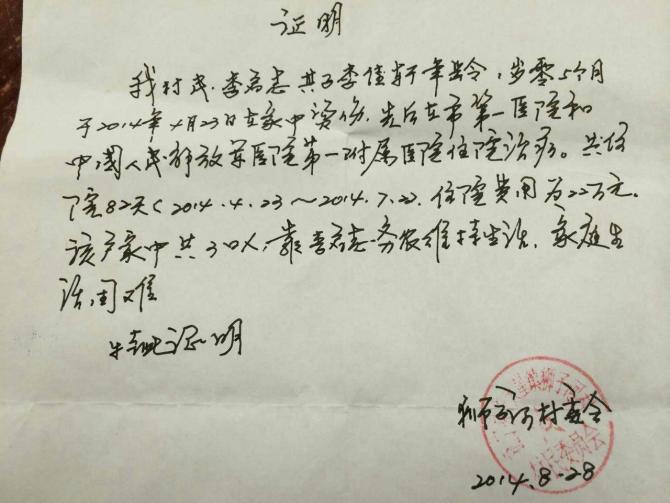 证明
我村民李君志其子李佳轩年龄1岁零5个月
于2014年4月23日在家中烫伤,先后在市第一医院和
中国人民解放军医院第一附属医院住院治病。共住
院82天(2014.4.23~2014.7.22.住院费用为22万元.
该户家中共3口人,靠李君志务农维持生活,家庭生
活困难
特此证明
狮子河村委会
2014.8-28
狮子河
村民委员会